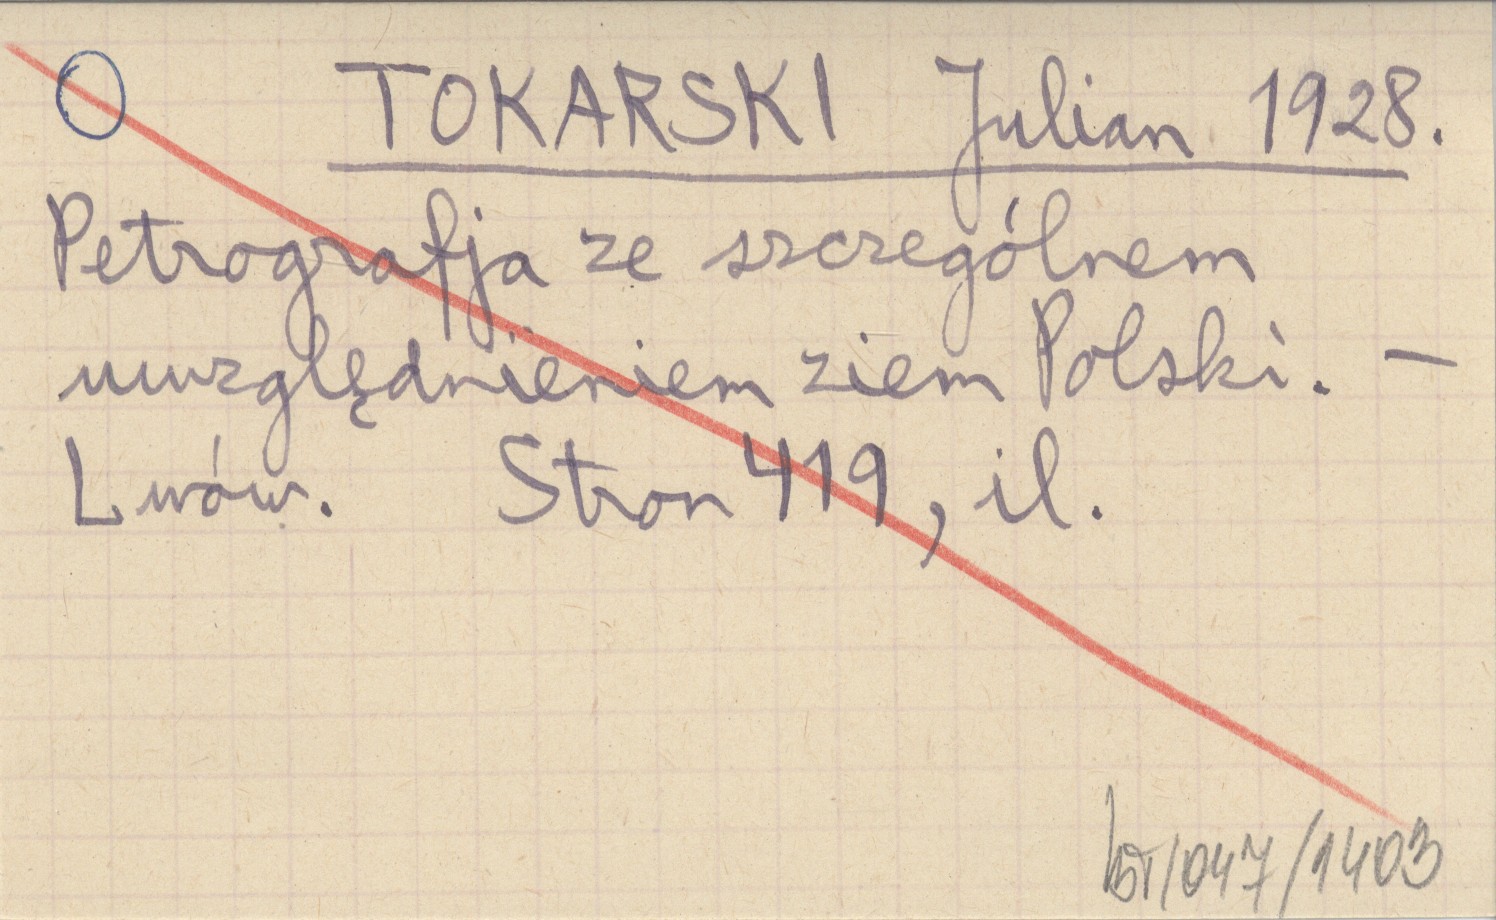 O TOKARSKI Julian 1928.
Petrografja ze szczególnem
uwzględnieniem ziem Polski. —
Lwów. Stron 419, il.
/047/1403